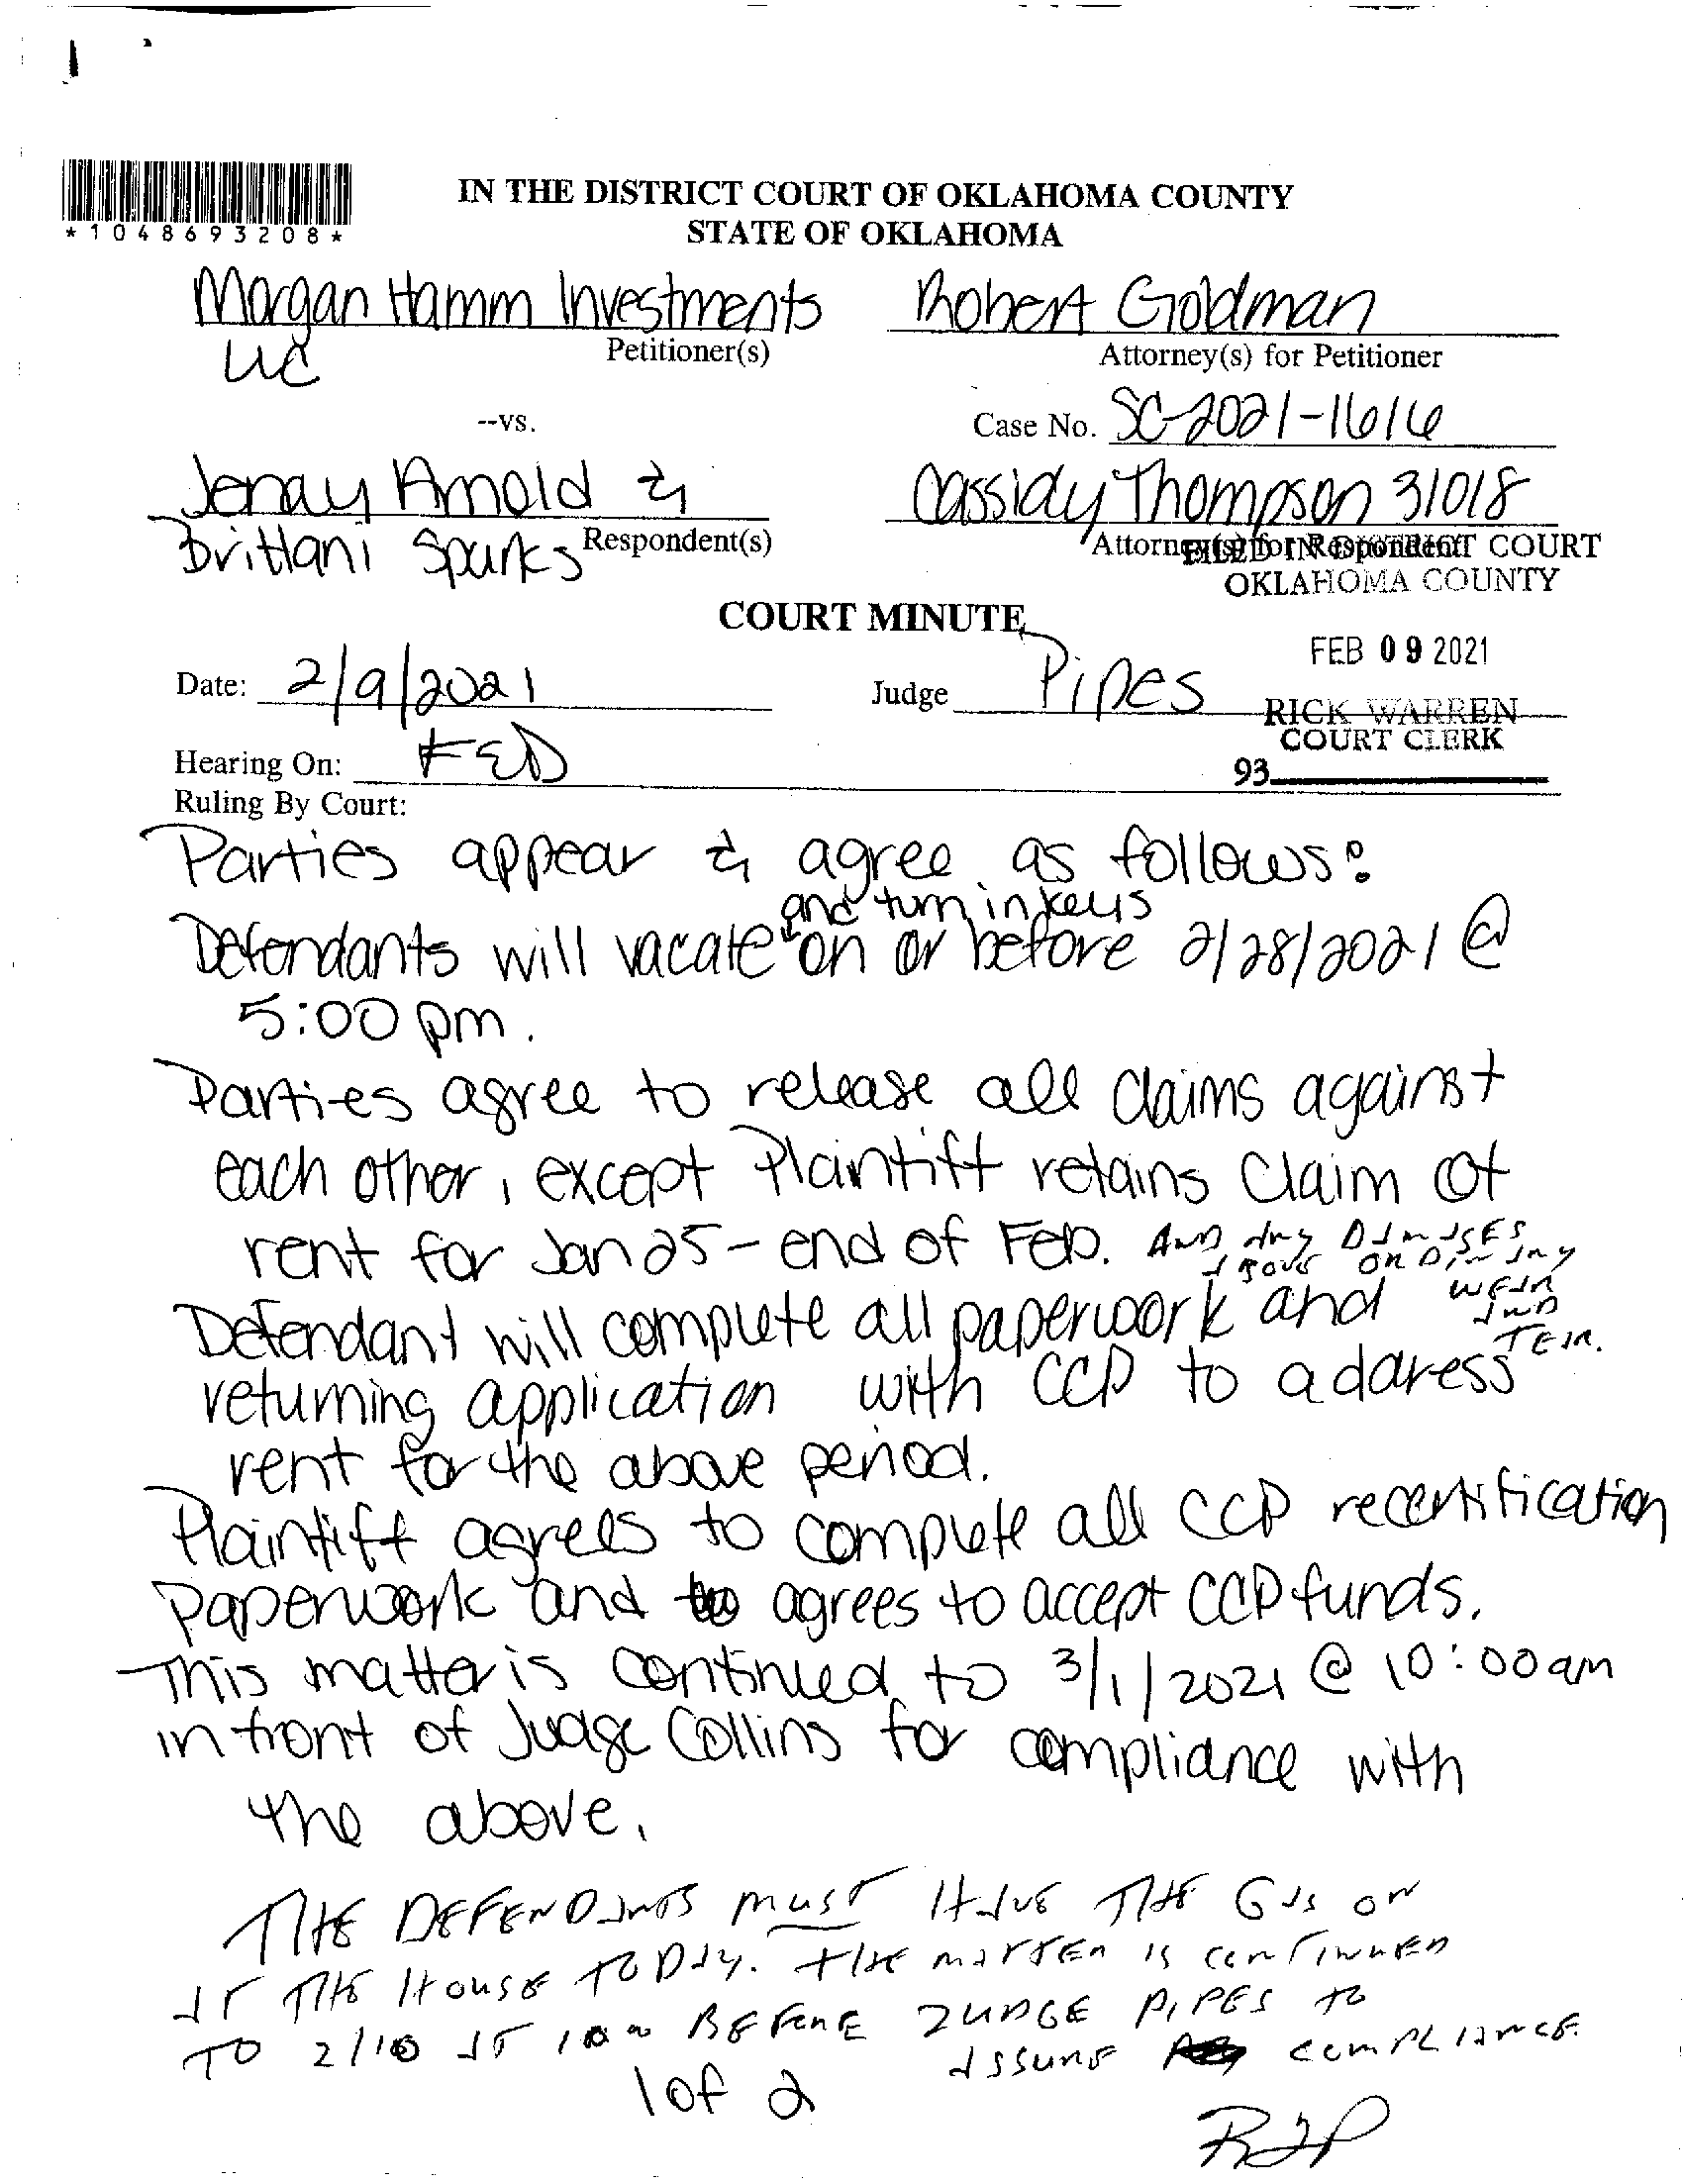 *1048693208*
IN THE DISTRICT COURT OF OKLAHOMA COUNTY
STATE OF OKLAHOMA
Morgan Hamm Investments
LLC
Petitioner(s)
Robert Goldman
Attorney(s) for Petitioner
--vs.
Case No. SC-2021-1616
Jenay Arnold &
Brittani Sparks
Respondent(s)
Cassidy Thompson 31018
Attorney(s) for Respondent
FILED IN DISTRICT COURT
OKLAHOMA COUNTY
COURT MINUTE
FEB 09 2021
Date: 2/9/2021
Judge Pipes
RICK WARREN
COURT CLERK
93
Hearing On: FED
Ruling By Court:
Parties appear & agree as follows:
and turn in keys
Defendants will vacate on or before 2/28/2021 @
5:00 pm.
Parties agree to release all claims against
each other, except Plaintiff retains claim of
rent for Jan 25 - end of Feb. AND ANY DAMAGES
ABOVE ORDINARY
WEAR
AND
TEAR.
Defendant will complete all paperwork and
returning application with CCP to address
rent for the above period.
Plaintiff agrees to complete all CCP recertification
paperwork and agrees to accept CCP funds.
This matter is continued to 3/1/2021 @ 10:00am
in front of Judge Collins for compliance with
the above.
THE DEFENDANTS MUST HAVE THE GAS ON
AT THE HOUSE TODAY. THE MATTER IS CONTINUED
TO 2/10 AT 10 BEFORE JUDGE PIPES TO
ASSURE COMPLIANCE.
1 of 2
RJP